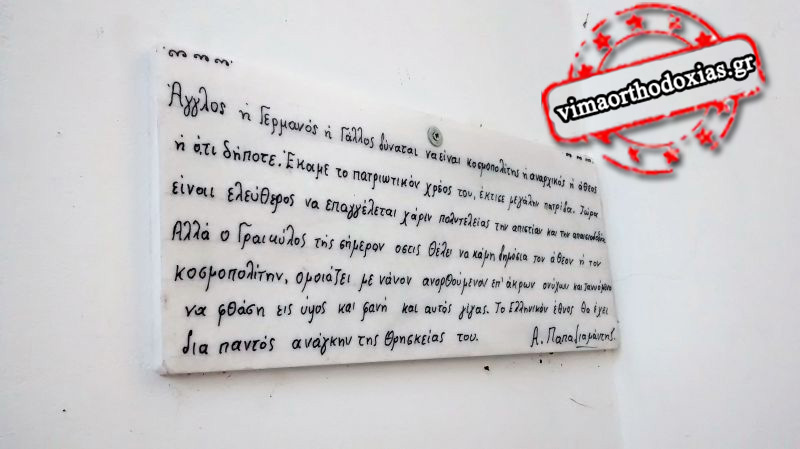 Άγγλος ή Γερμανός ή Γάλλος δύναται να είναι κοσμοπολίτης ή αναρχικός ή άθεος
ή ό,τι δήποτε. Έκαμε το πατριωτικόν χρέος του, έκτισε μεγάλην πατρίδα. Τώρα
είναι ελεύθερος να επαγγέλεται χάριν πολυτελείας την απιστίαν και την απαισιοδοξίαν
Αλλά ο Γραικύλος της σήμερον οστις θέλει να κάμη δημόσια τον άθεον ή τον
κοσμοπολίτην, ομοιάζει με νάνον ανορθούμενον επ' άκρων ονύχων και τανυόμενο
να φθάση εις ύψος και φανή και αυτός γίγας. Το Ελληνικόν έθνος θα έχει
δια παντός ανάγκην της Θρησκείας του. Α. Παπαδιαμάντης.
vimaorthodoxias.gr